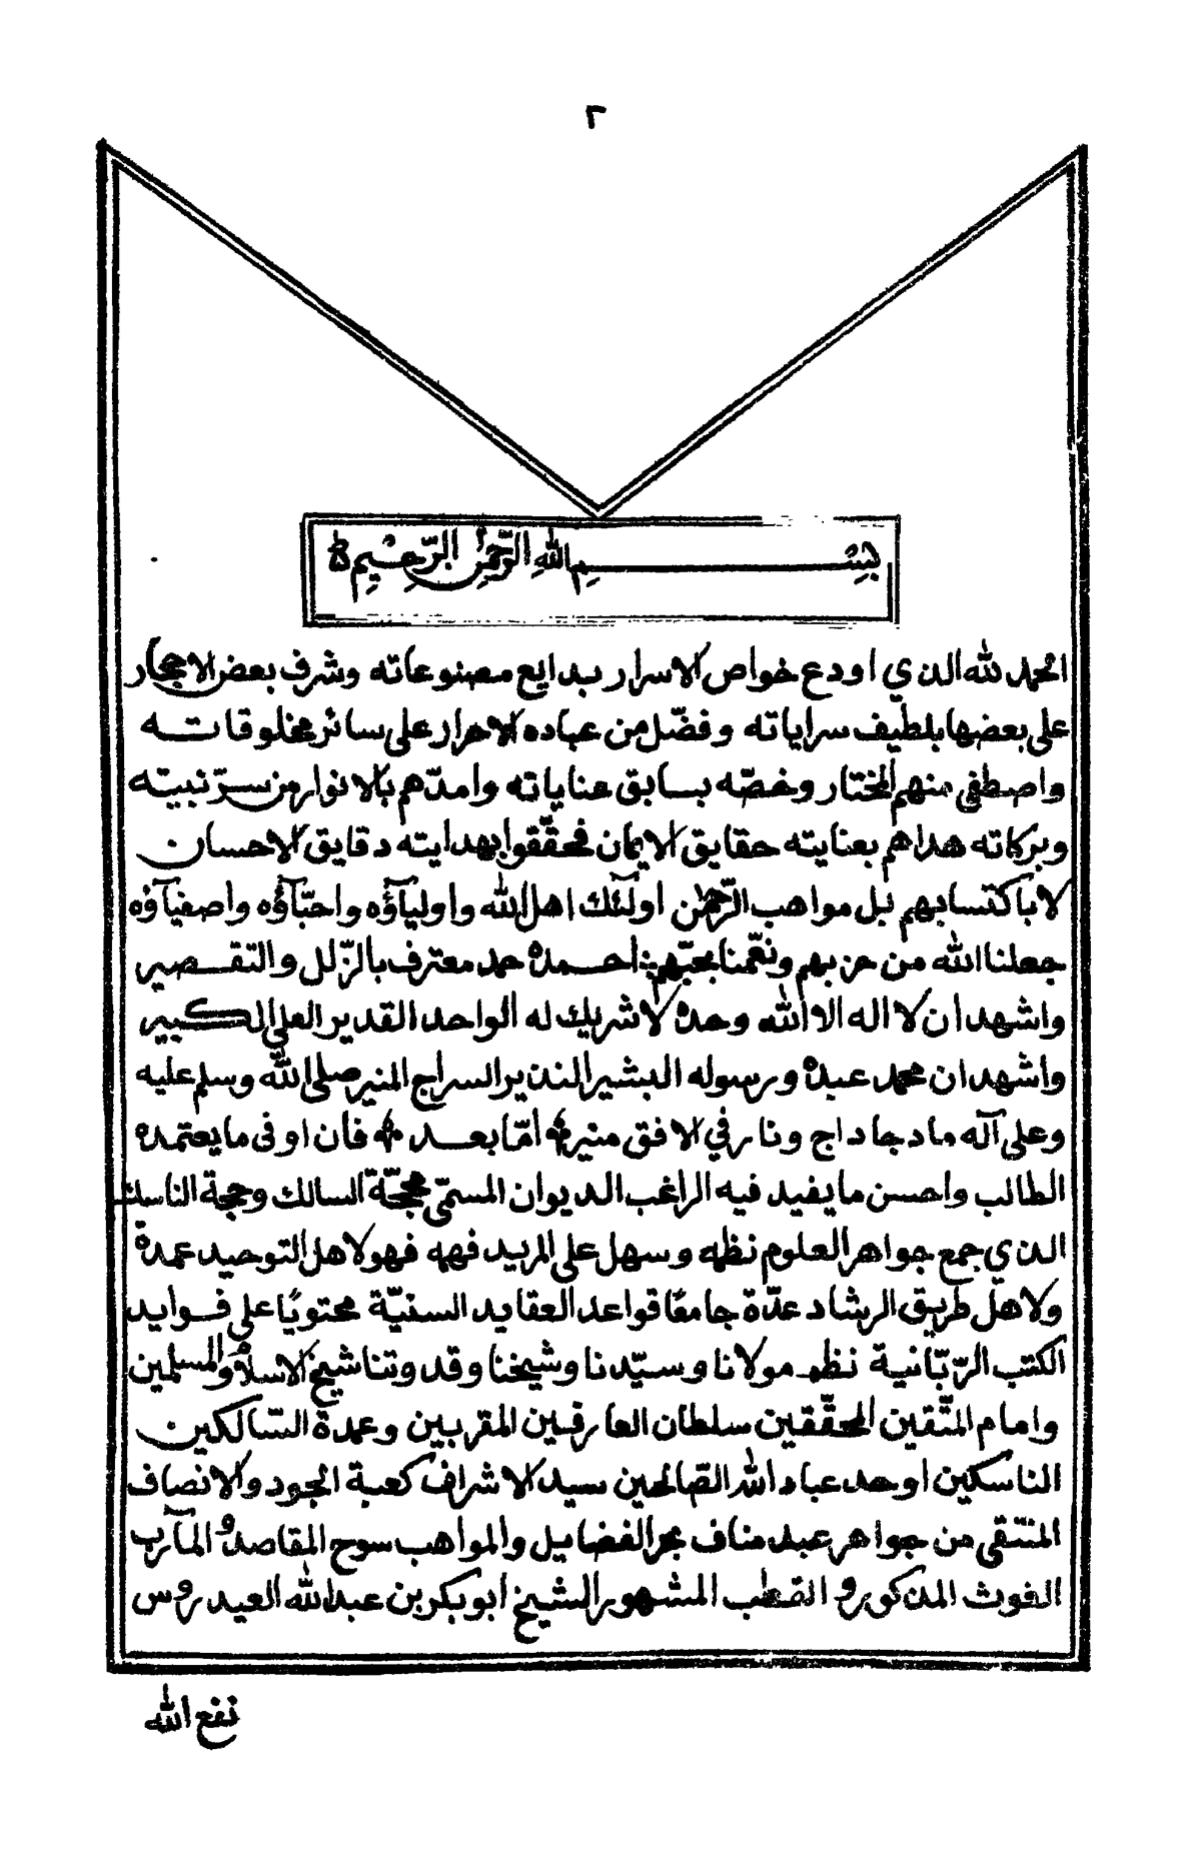 ٢
بسم الله الرحمن الرحيم
الحمد لله الذي اودع خواص الاسرار ببدايع مصنوعاته وشرف بعض الاحجار
على بعضها بلطيف سراياته وفضّل من عباده الاحرار على سائر مخلوقاته
واصطفى منهم المختار وخصّه بسابق عناياته وامدّهم بالانوار من سرّ نبيّه
وبركاته هداهم بعنايته حقايق الايمان فحقّقوا بهدايته دقايق الاحسان
لا باكتسابهم بل مواهب الرّحمٰن اولٓئك اهل الله واوليآؤه واحبّآؤه واصفيآؤه
جعلنا الله من حزبهم ونعّمنا بحبّهم احمده حمد معترف بالزّلل والتقصير
واشهد ان لا اله الا الله وحده لا شريك له الواحد القدير العلي الكبير
واشهد ان محمد عبده ورسوله البشير النذير السراج المنير صلى الله وسلم عليه
وعلى آله ما دجا داج ونار في الافق منير امّا بعد فان اوفى ما يعتمده
الطالب واحسن ما يفيد فيه الراغب الديوان المسمّى محجّة السالك وحجة الناسك
الذي جمع جواهر العلوم نظمه وسهل على المريد فهمه فهو لاهل التوحيد عمدة
ولاهل طريق الرشاد عدّة جامعًا قواعد العقايد السنيّة محتويًا على فوايد
الكتب الرّبّانية نظم مولانا وسيّدنا وشيخنا وقدوتنا شيخ الاسلام والمسلمين
وامام المتّقين المحقّقين سلطان العارفين المقربين وعمدة السّالكين
الناسكين اوحد عباد الله الصّالحين سيد الاشراف كعبة الجود والانصاف
المنتقى من جواهر عبد مناف بحر الفضايل والمواهب سوح المقاصد والمآرب
الغوث المذكور والقطب المشهور الشيخ ابوبكر بن عبدالله العيدروس
نفع الله